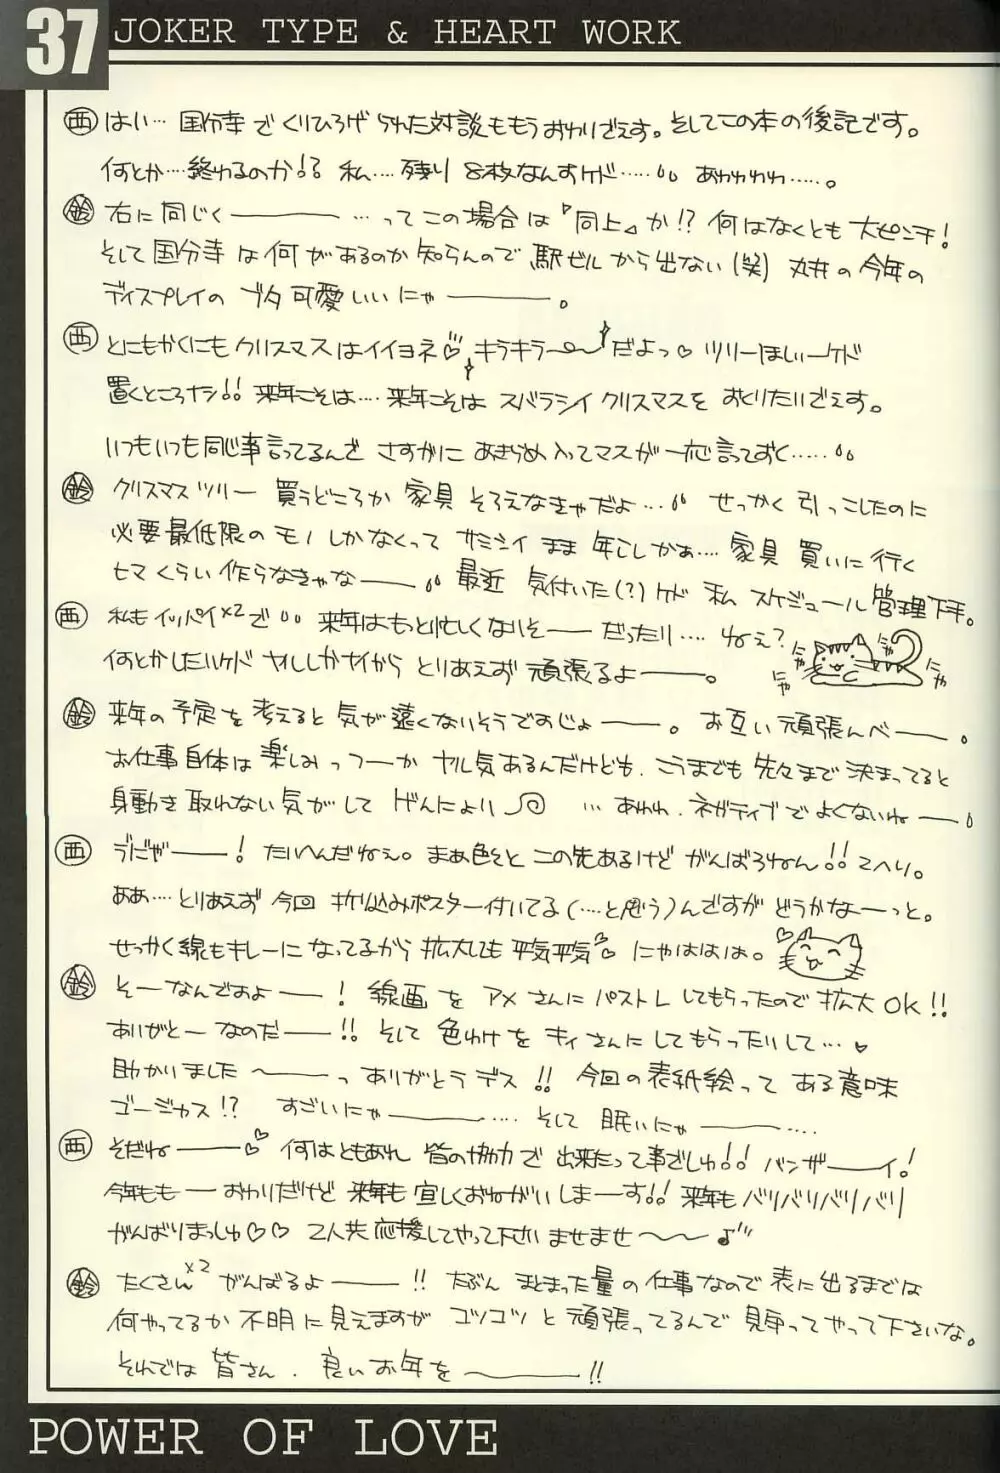 37 JOKER TYPE & HEART WORK
西 はい… 国分寺でくりひろげられた対談ももうおわりでえす。そしてこの本の後記です。
何とか‥‥終わるのか!? 私‥‥残り8枚なんすケド‥‥‥ あわわわわ‥‥‥。
鈴 右に同じく――― …ってこの場合は『同上』か!? 何はなくとも大ピンチ!
そして国分寺は何があるのか知らんので駅ビルから出ない(笑) 丸井の今年の
ディスプレイのブタ可愛いいにゃ―――。
西 とにもかくにもクリスマスはイイヨネ♡ キラキラ〜〜だよっ♡ ツリーほしいーケド
置くところナシ!! 来年こそは‥‥来年こそはスバラシイクリスマスをおくりたいでえす。
いつもいつも同じ事言ってるんでさすがにあきらめ入ってマスが一応言っておく‥‥‥
鈴 クリスマスツリー買うどころか家具そろえなきゃだよ… せっかく引っこしたのに
必要最低限のモノしかなくってサミシイまま年こしかぁ‥‥家具買いに行く
ヒマくらい作らなきゃな―― 最近気付いた(?)ケド私スケジュール管理下手。
西 私もイッパイ×2で 来年はもっと忙しくないぞ――だったり‥‥ねぇ?
にゃ にゃ にゃ にゃ
何とかしたいケドヤルしかナイからとりあえず頑張るよ―――。
鈴 来年の予定を考えると気が遠くないそうですじょ――。お互い頑張んべ――。
お仕事自体は楽しみっつーかヤル気あるんだけども、こうまでも先々まで決まってると
身動き取れない気がしてげんにょり …あわわ、ネガティブでよくないね――
西 うだぁ――! たいへんだねぇ。まぁ色々とこの先あるけどがんばろねん!! 2人で。
ああ‥‥とりあえず今回折り込みポスター付いてる(…と思う)んですがどうかなーっと。
せっかく線もキレーになってるから拡大しても平気平気♡ にゃははは。
鈴 そーなんですよ――! 線画をアメさんにパストレしてもらったので拡大OK!!
ありがとーなのだ――!! そして色わけをキィさんにしてもらったりして…♥
助かりました〜――っ ありがとうデス!! 今回の表紙絵ってある意味
ゴージャス!? すごいにゃ―――‥‥ そして眠いにゃ―――‥‥
西 そだね――♡ 何はともあれ皆の協力で出来たって事でしゅ!! バンザ――イ!
今年ももーおわりだけど来年も宜しくおねがいしまーす!! 来年もバリバリバリバリ
がんばりまっしゅ♡♡ 2人共応援してやって下さいませませ〜〜♪
鈴 たくさん×2がんばるよ――!! たぶんまとまった量の仕事なので表に出るまでは
何やってるか不明に見えますがコツコツと頑張ってるんで見守ってやって下さいな。
それでは皆さん、良いお年を――――!!
POWER OF LOVE